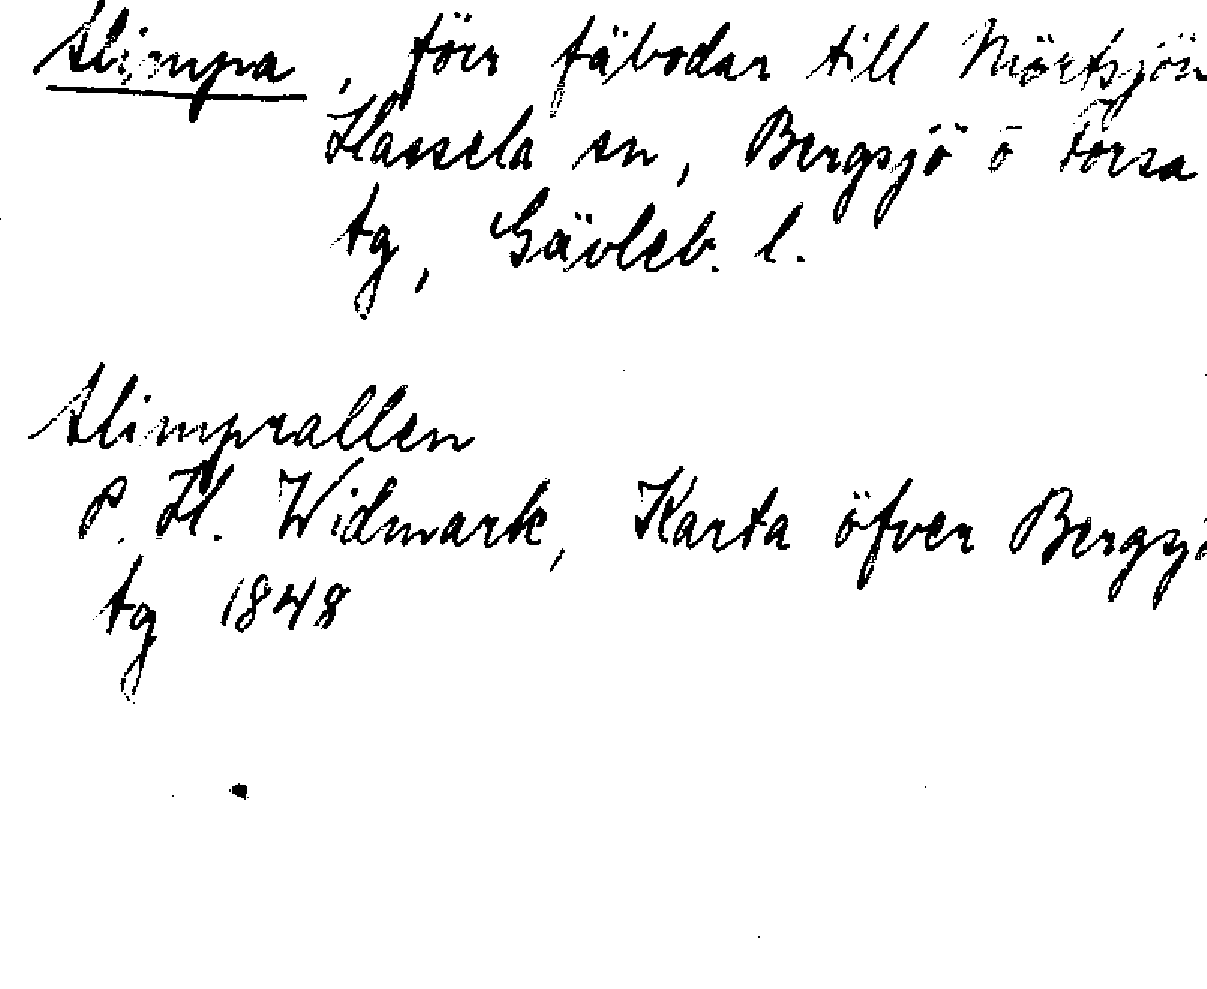 Slimpa, förr fäbodar till Mörtsjön
Hassela sn, Bergsjö o Forsa
tg, Gävleb. l.
Slimpvallen
P. H. Widmark, Karta öfver Bergsjö
tg 1848